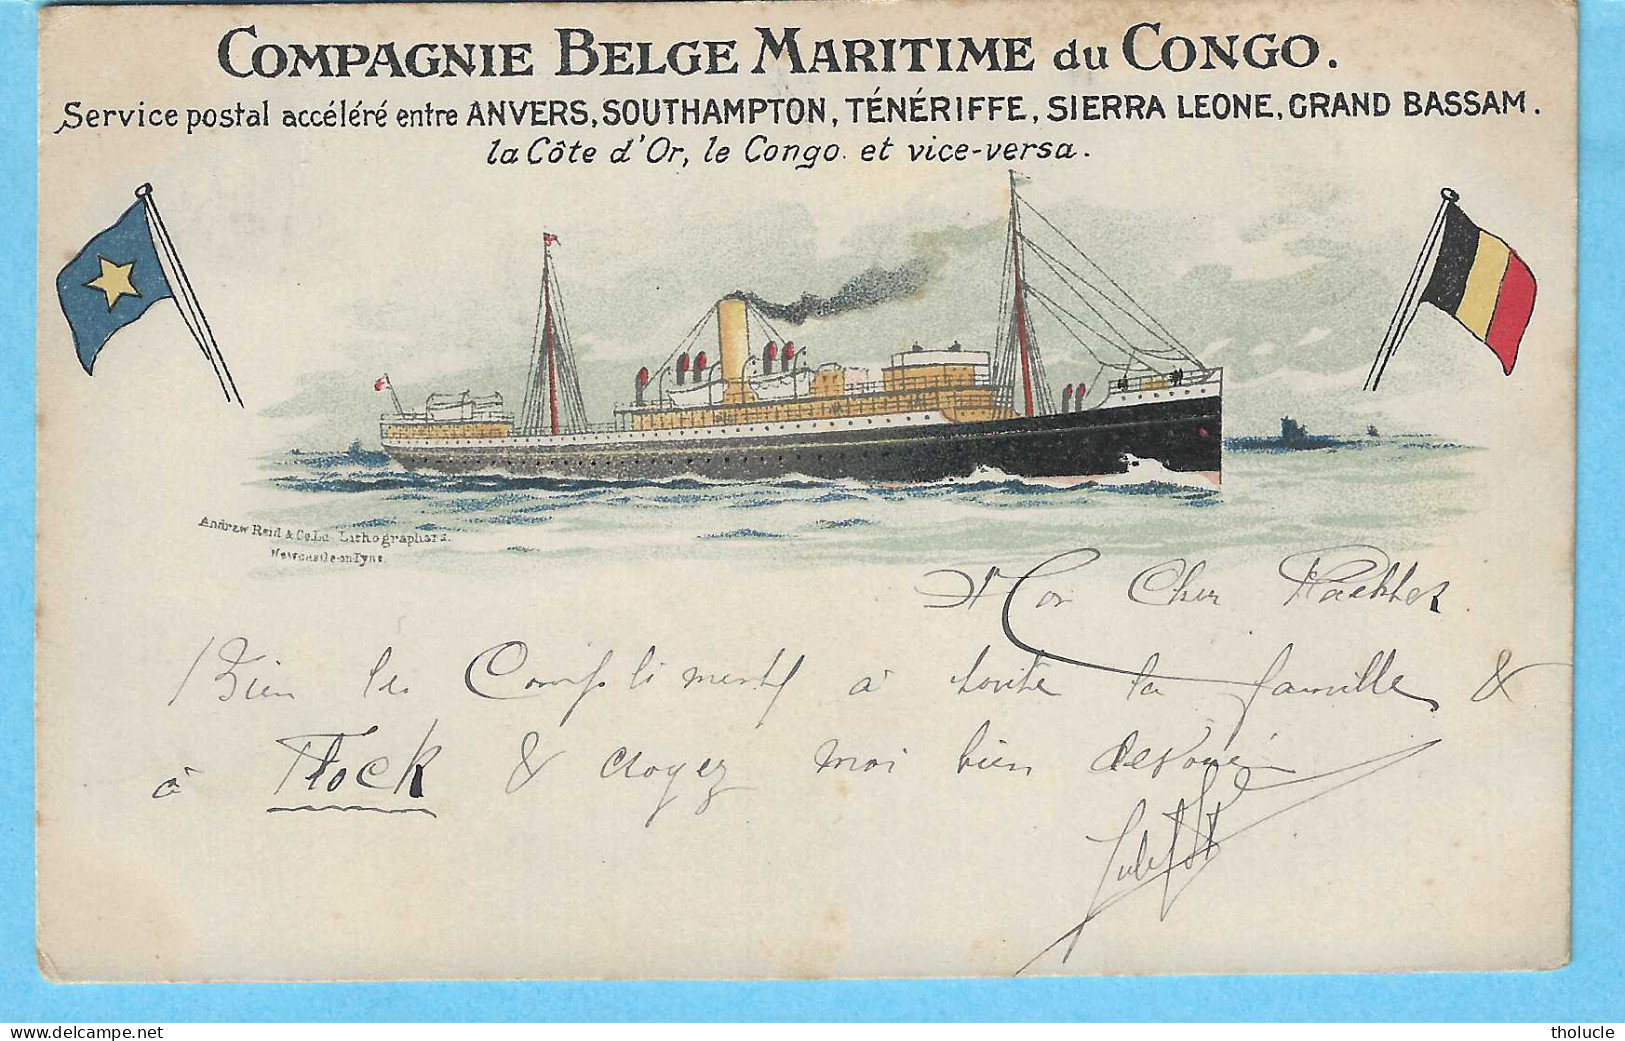 COMPAGNIE BELGE MARITIME du CONGO.
Service postal accéléré entre ANVERS, SOUTHAMPTON, TÉNÉRIFFE, SIERRA LEONE, GRAND BASSAM.
la Côte d'Or, le Congo. et vice-versa.
Andrew Reid & Co. Ld. Lithographers.
Newcastle-on-Tyne.
Mon Cher
Bien les Compliments à toute la famille &
à Flock & croyez moi bien dévoué
© tholucle